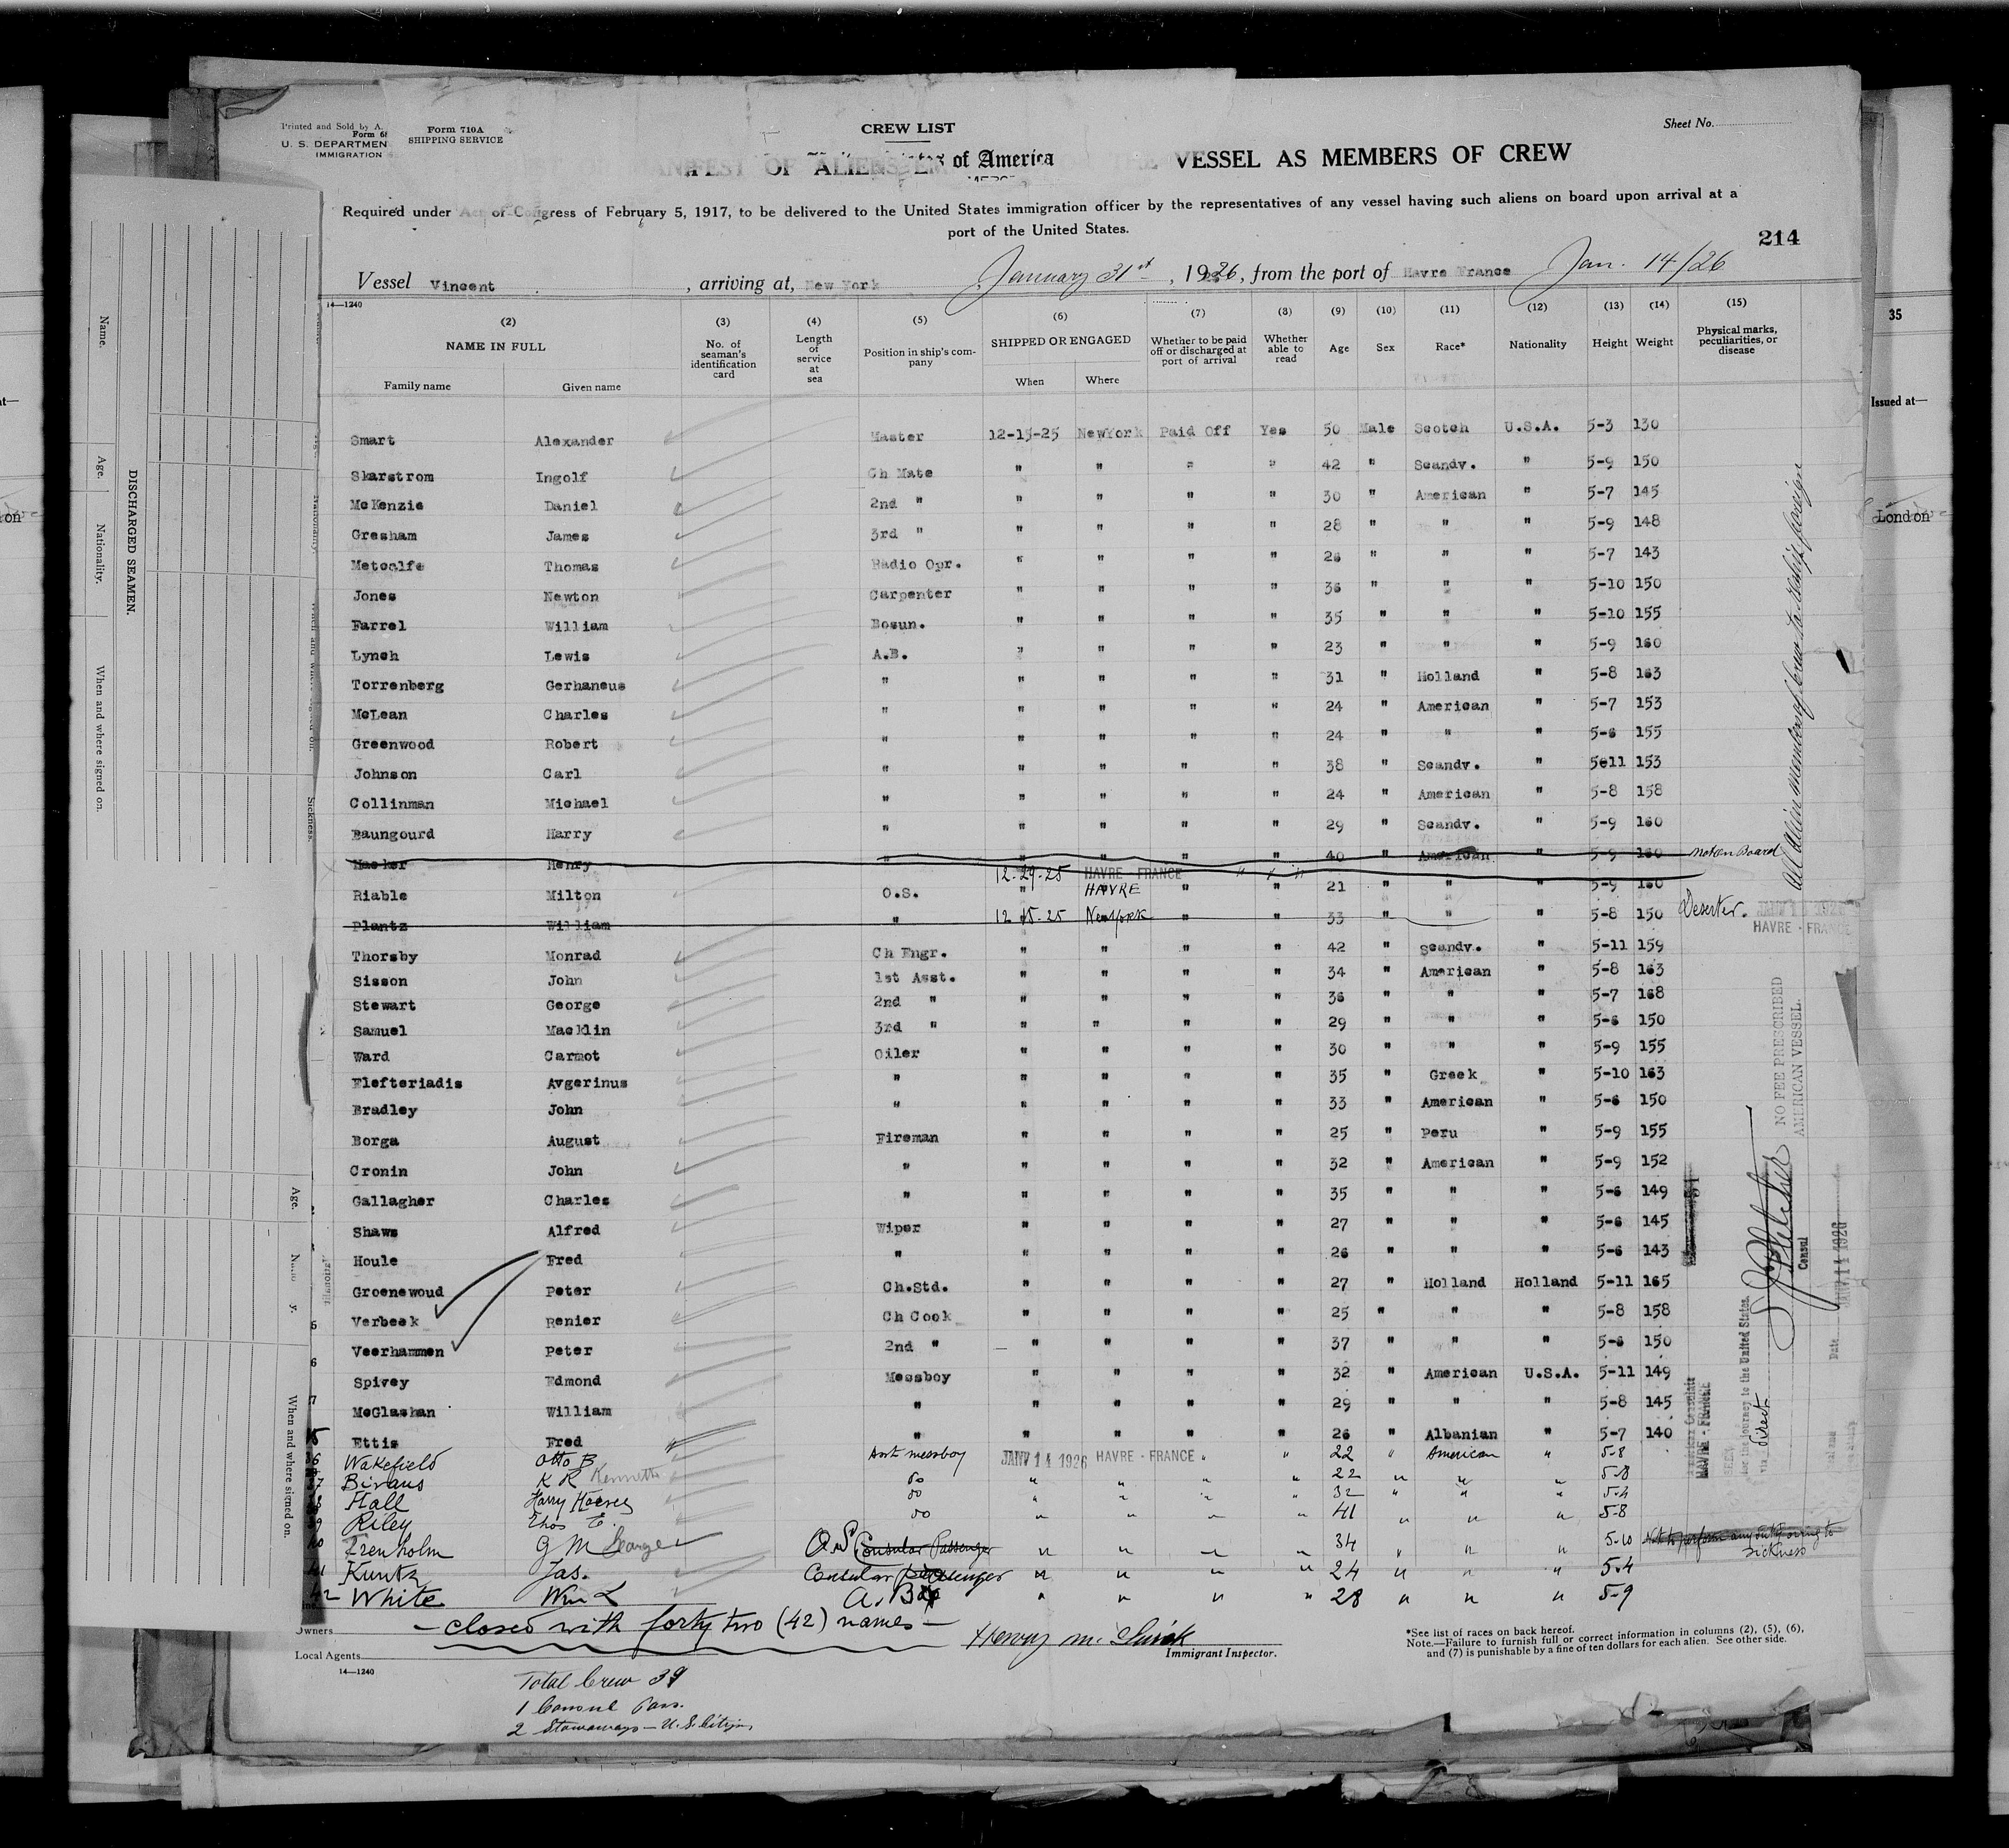 Printed and Sold by A.
Form 710A
SHIPPING SERVICE
U. S. DEPARTMEN
IMMIGRATION
CREW LIST
Sheet No.
MANIFEST OF ALIENS of America VESSEL AS MEMBERS OF CREW
Required under Act of Congress of February 5, 1917, to be delivered to the United States immigration officer by the representatives of any vessel having such aliens on board upon arrival at a
port of the United States.
214
Vessel Vincent, arriving at, New York January 31st, 1926, from the port of Havre France Jan. 14/26
14—1240
(2) (3) (4) (5) (6) (7) (8) (9) (10) (11) (12) (13) (14) (15)
NAME IN FULL No. of seaman's identification card Length of service at sea Position in ship's company SHIPPED OR ENGAGED Whether to be paid off or discharged at port of arrival Whether able to read Age Sex Race* Nationality Height Weight Physical marks, peculiarities, or disease
Family name Given name When Where
Smart Alexander Master 12-15-25 NewYork Paid Off Yes 50 Male Scotch U.S.A. 5-3 130
Skarstrom Ingolf Ch Mate " " " " 42 " Scandv. " 5-9 150
McKenzie Daniel 2nd " " " " " 30 " American " 5-7 145
Gresham James 3rd " " " " " 28 " " " 5-9 148
Metcalfe Thomas Radio Opr. " " " " 26 " " " 5-7 143
Jones Newton Carpenter " " " " 36 " " " 5-10 150
Farrel William Bosun. " " " " 35 " " " 5-10 155
Lynch Lewis A.B. " " " " 23 " " " 5-9 160
Torrenberg Gerhaneus " " " " " 31 " Holland " 5-8 163
McLean Charles " " " " " 24 " American " 5-7 153
Greenwood Robert " " " " " 24 " " " 5-6 155
Johnson Carl " " " " " 38 " Scandv. " 5e11 153
Collinman Michael " " " " " 24 " American " 5-8 158
Baungourd Harry " " " " " 29 " Scandv. " 5-9 160
Henry " " " " " 40 " American " 5-9 160 not on Board
12-29-25 HAVRE - FRANCE " " "
Riable Milton O.S. " HAVRE " " 21 " " " 5-9 160
Plantz William " 12-15-25 New York " " 33 " " " 5-8 150 Deserter.
HAVRE - FRANCE
Thorsby Monrad Ch Engr. " " " " 42 " Scandv. " 5-11 159
Sisson John 1st Asst. " " " " 34 " American " 5-8 163
Stewart George 2nd " " " " " 36 " " " 5-7 168
Samuel Macklin 3rd " " " " " 29 " " " 5-6 150
Ward Carmot Oiler " " " " 30 " " " 5-9 155
Elefteriadis Avgerinus " " " " " 35 " Greek " 5-10 163
Bradley John " " " " " 33 " American " 5-6 150
Borga August Fireman " " " " 25 " Peru " 5-9 155
Cronin John " " " " " 32 " American " 5-9 152
Gallagher Charles " " " " " 35 " " " 5-6 149
Shaws Alfred Wiper " " " " 27 " " " 5-6 145
Houle Fred " " " " " 26 " " " 5-6 143
Groenewoud Peter Ch.Std. " " " " 27 " Holland Holland 5-11 165
Verbeek Renier Ch Cook " " " " 25 " " " 5-8 158
Veerhammen Peter 2nd " " " " " 37 " " " 5-6 150
Spivey Edmond Messboy " " " " 32 " American U.S.A. 5-11 149
McGlashan William " " " " " 29 " " " 5-8 145
Ettis Fred " " " " " 26 " Albanian " 5-7 140
36 Wakefield Otto B. Asst messboy JANV 14 1926 HAVRE - FRANCE " " 22 " American " 5-8
37 Bivans K R Kenneth do " " " " 22 " " " 5-8
38 Hall Harry do " " " " 32 " " " 5-4
39 Riley Thos E. do " " " " 41 " " " 5-8
40 Trenholm G M George O.S. Consular Passenger " " " " 34 " " " 5-10 Not to perform any duty owing to sickness
41 Kuntz Jas. Consular Passenger " " " " 24 " " " 5-4
42 White Wm L A.B. " " " " 28 " " " 5-9
- closed with forty two (42) names -
Owners
Local Agents
Immigrant Inspector.
14—1240
*See list of races on back hereof.
Note.—Failure to furnish full or correct information in columns (2), (5), (6),
and (7) is punishable by a fine of ten dollars for each alien. See other side.
Total Crew 39
1 Consul Pass.
2 Stowaways - U.S. Citizens
All Alien members of crew to reship foreign
NO FEE PRESCRIBED
AMERICAN VESSEL.
Consul
JANV 14 1926
Date
American Consulate
HAVRE - FRANCE
SEEN
for the journey to the United States.
via direct
DISCHARGED SEAMEN.
Name.
Age.
Nationality.
When and where signed on.
Sickness.
Age.
When and where signed on.
35
Issued at—
London